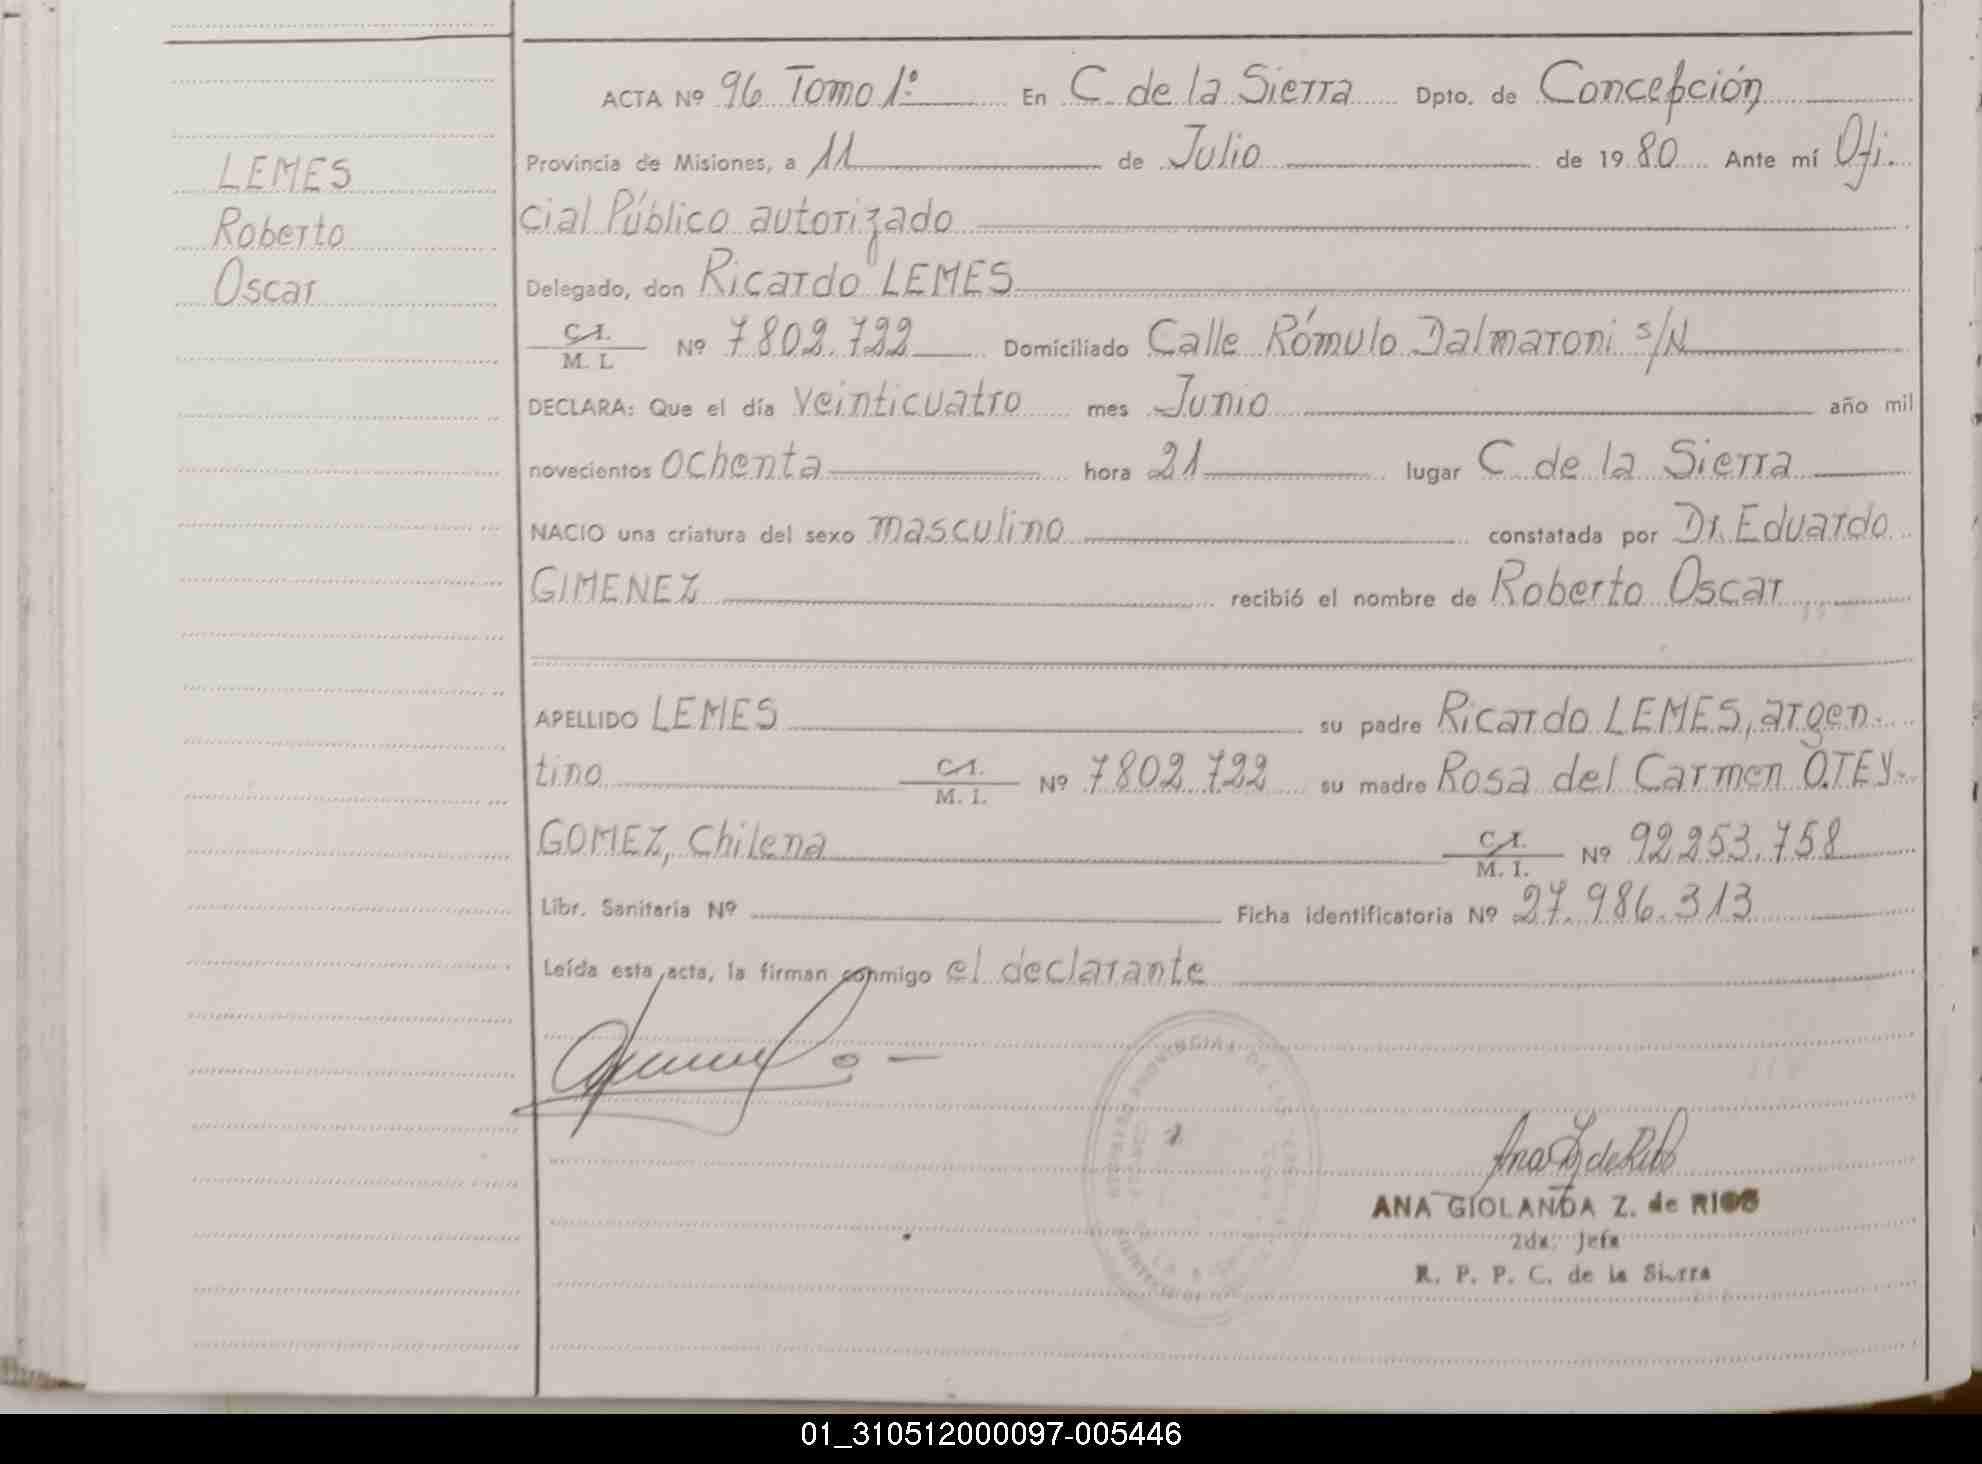 ACTA Nº 96 Tomo 1º En C. de la Sierra Dpto. de Concepción
LEMES
Roberto
Oscar
Provincia de Misiones, a 11 de Julio de 1980 Ante mí Ofi-
cial Público autorizado
Delegado, don Ricardo LEMES
C.I. M. I. Nº 7802.722 Domiciliado Calle Rómulo Dalmaroni s/N
DECLARA: Que el día veinticuatro mes Junio año mil
novecientos ochenta hora 21 lugar C. de la Sierra
NACIO una criatura del sexo masculino constatada por Dr. Eduardo
GIMENEZ recibió el nombre de Roberto Oscar
APELLIDO LEMES su padre Ricardo LEMES, argen-
tino C.I. M. I. Nº 7802.722 su madre Rosa del Carmen OTEY-
GOMEZ, Chilena C.I. M. I. Nº 92253.758
Libr. Sanitaria Nº Ficha identificatoria Nº 27.986.313
Leída esta acta, la firman conmigo el declarante
Ana Z de Rios
ANA GIOLANDA Z. de RIOS
2da. Jefa
R. P. P. C. de la Sierra
01_310512000097-005446